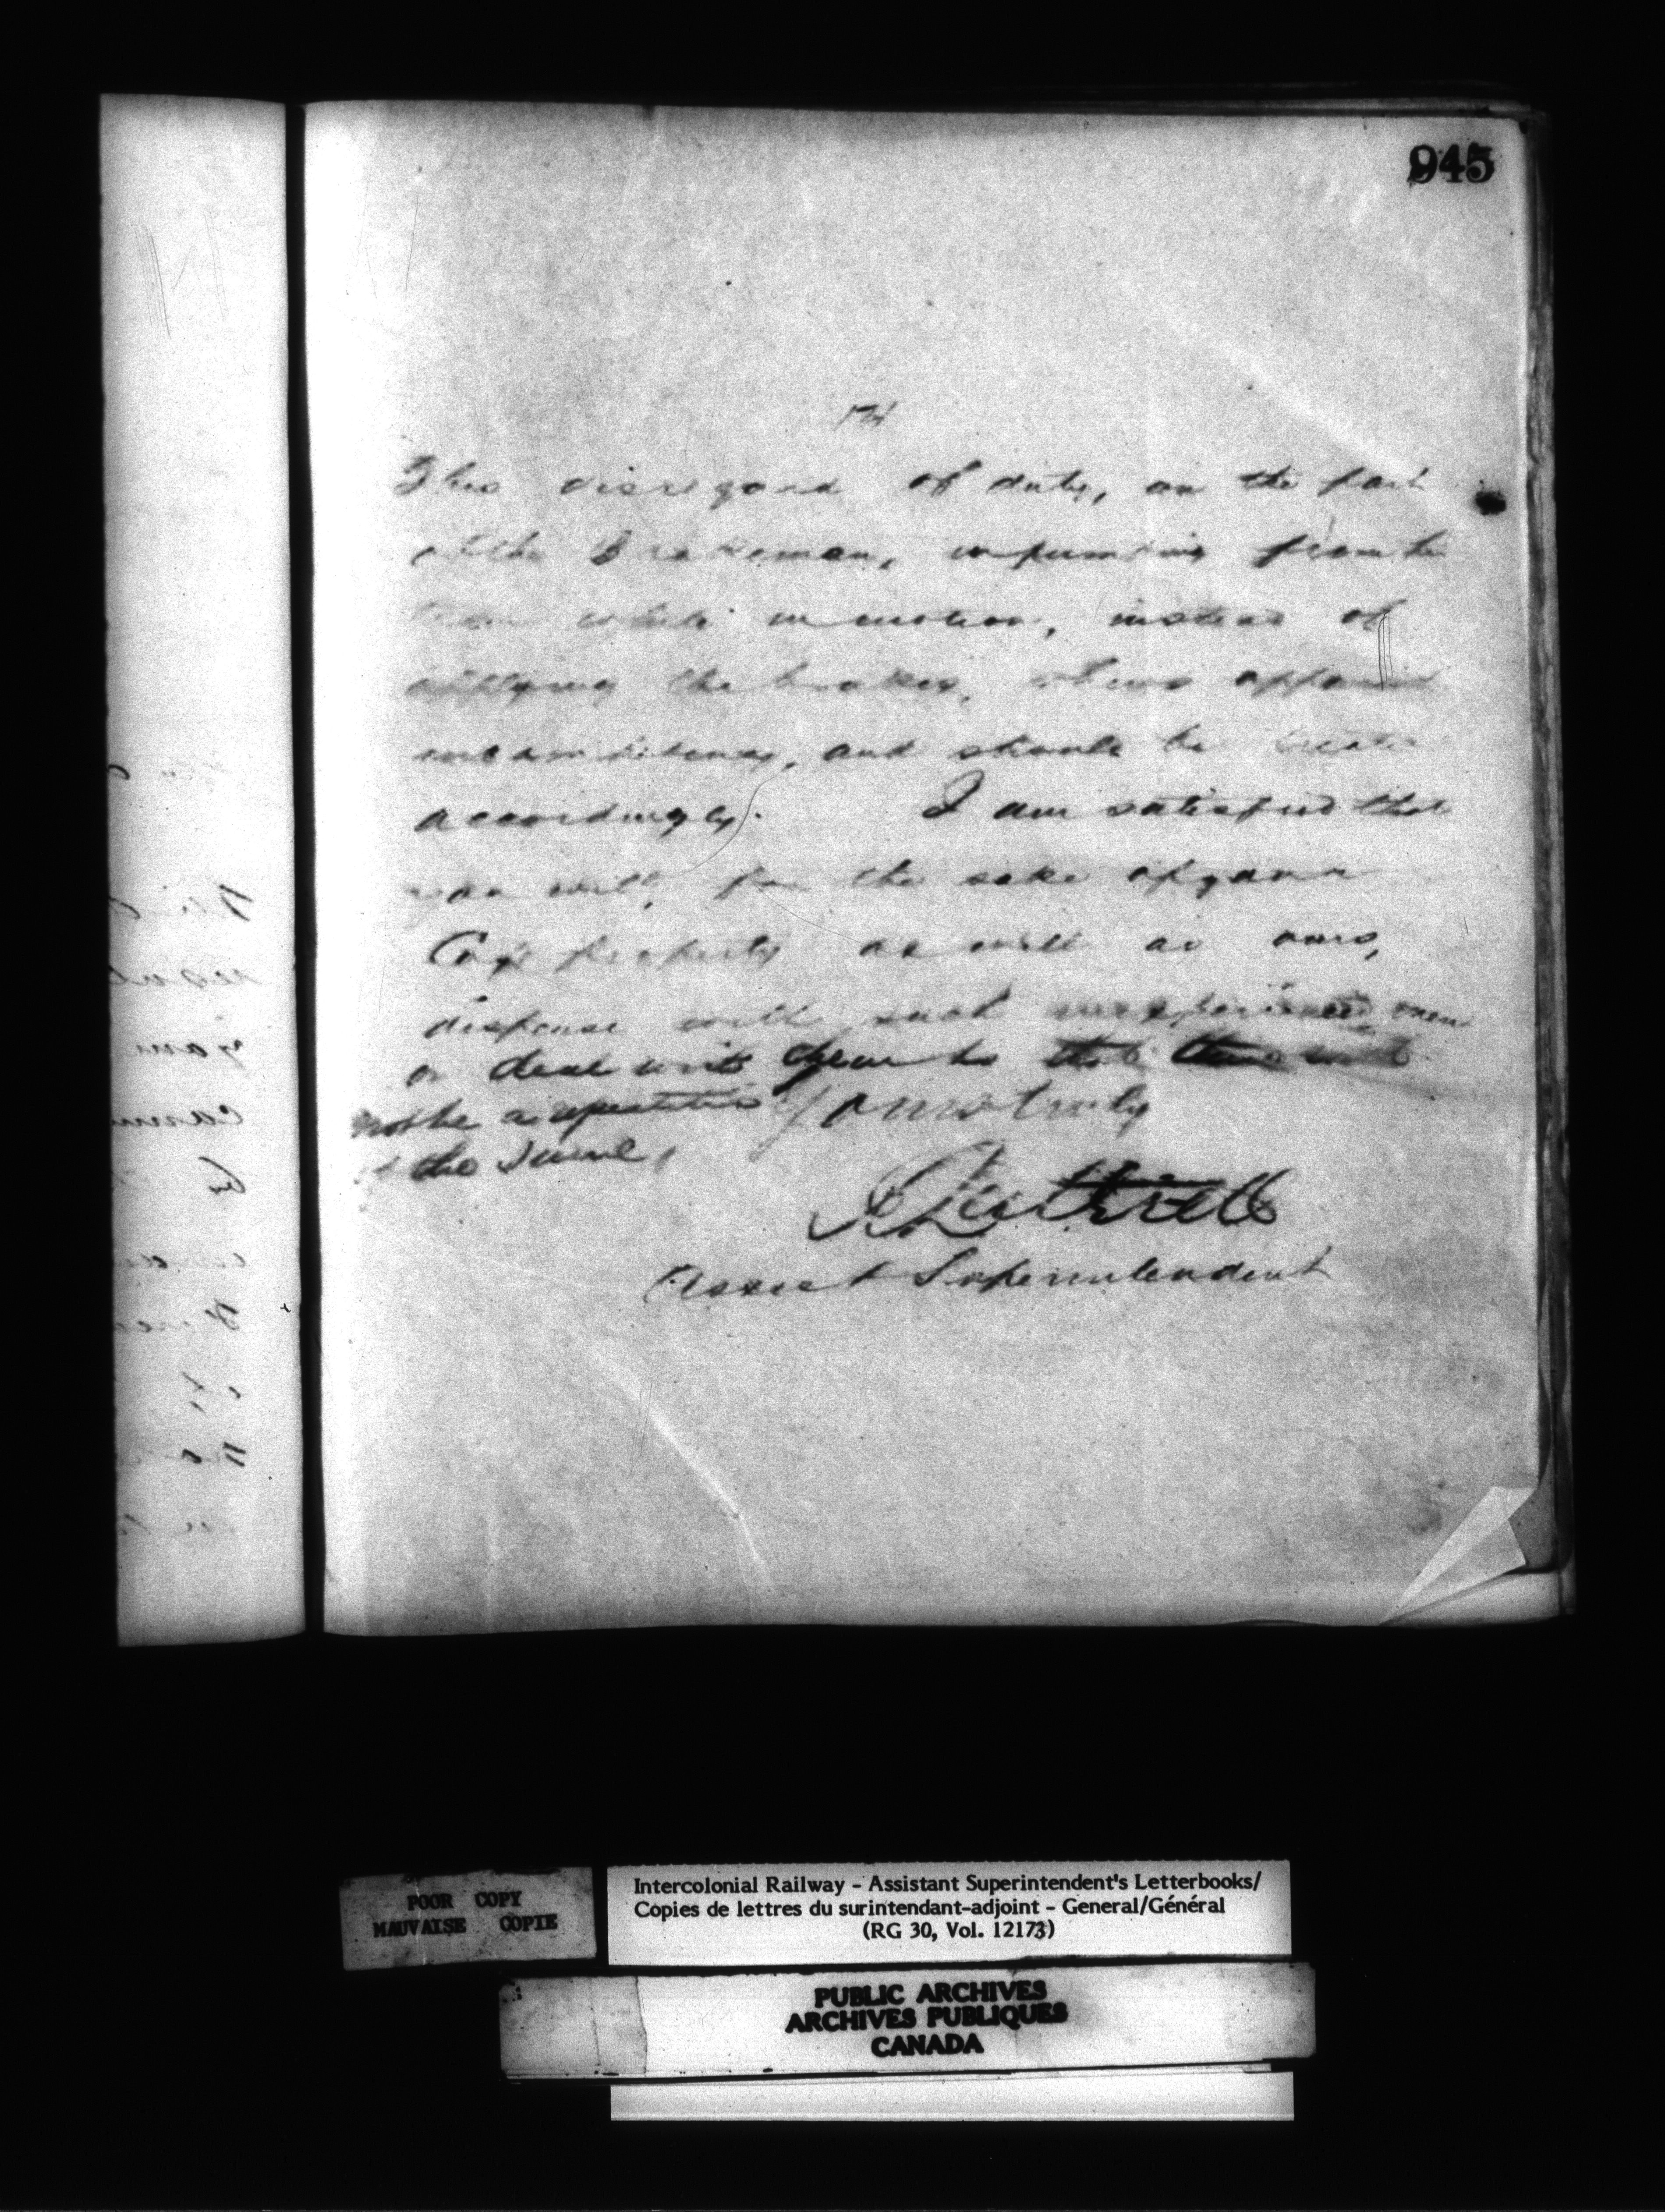 945
This disregard of duty, on the part
of the Brakeman, in jumping from the
train while in motion, instead of
applying the brakes, shows
incompetency, and should be
accordingly. I am satisfied that
you will, for the sake of your
Coys property as well as ours,
dispense with such inexperienced men
or deal with them so that there will
not be a repetition
of the same,
Yours truly
Assist Superintendent
POOR COPY
MAUVAISE COPIE
Intercolonial Railway - Assistant Superintendent's Letterbooks/
Copies de lettres du surintendant-adjoint - General/Général
(RG 30, Vol. 12173)
PUBLIC ARCHIVES
ARCHIVES PUBLIQUES
CANADA